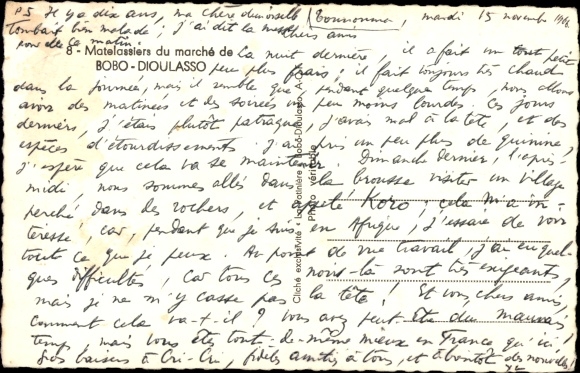 P.S. Il y a dix ans, ma chère demoiselle
tombait bien malade ; j'ai dit la messe
pour elle ce matin.
mardi 15 novembre
chers amis
8 - Matelassiers du marché de
BOBO-DIOULASSO
La nuit dernière, il a fait un tout petit
peu plus frais ; il fait toujours très chaud
dans la journée, mais il semble que, pendant quelque temps, nous allons
avoir des matinées et des soirées un peu moins lourdes. Ces jours
derniers, j'étais plutôt patraque, j'avais mal à la tête, et des
espèces d'étourdissements ; j'ai pris un peu plus de quinine,
j'espère que cela va se maintenir. Dimanche dernier, l'après-
midi, nous sommes allés dans la brousse visiter un village
perché dans des rochers, et appelé Koro : cela m'a in-
téressé, car, pendant que je suis en Afrique, j'essaie de voir
tout ce que je peux. Au point de vue travail, j'ai eu quel-
ques difficultés. Car tous ces nous-là sont très exigeants,
mais je ne m'y casse pas la tête ! Et vous, chers amis,
comment cela va-t-il ? vous avez peut-être du mauvais
temps, mais vous êtes tout-de-même mieux en France qu'ici !
Gros baisers à Cri-Cri, fidèles amitiés à tous, et à bientôt des nouvelles !
Cliché exclusivité - La Photinière - Bobo-Dioulasso, A.O.
Photo véritable